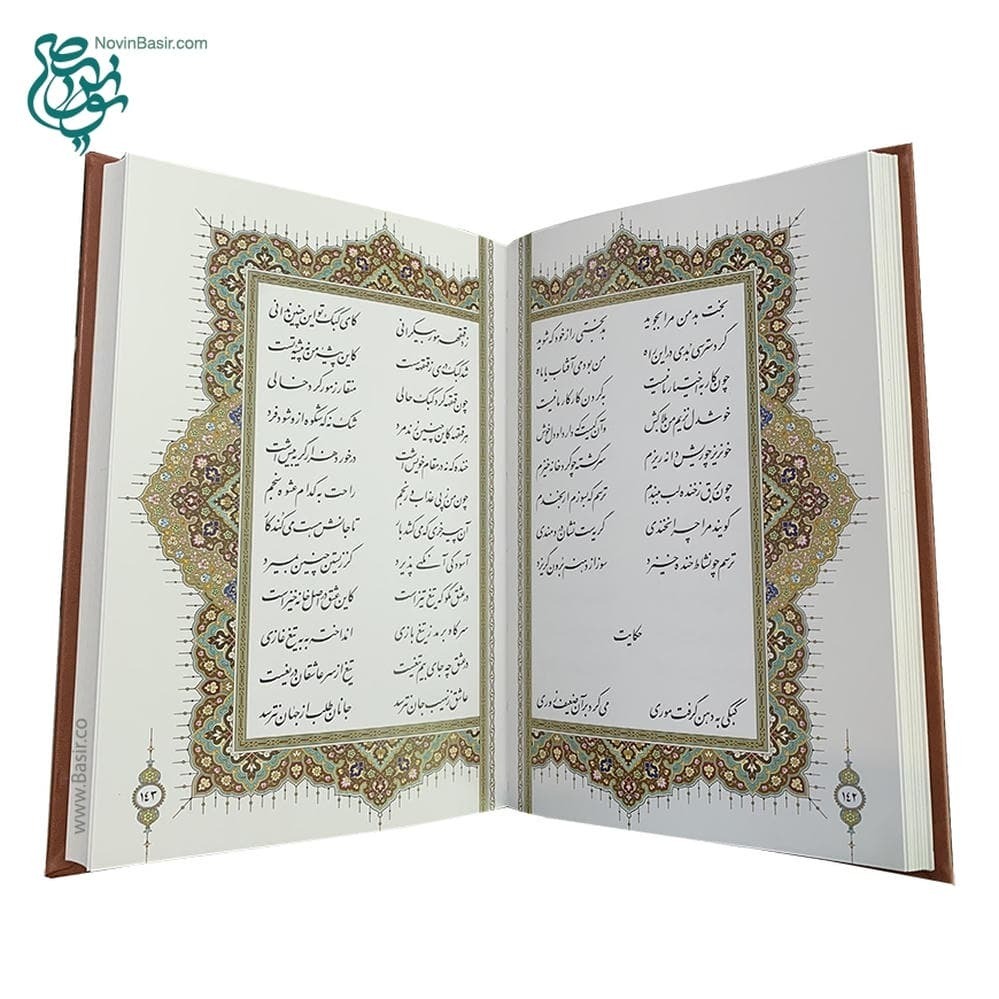 NovinBasir.com
بخت بد من مرا بجوید بدبختی را ز خود که شوید
گر دسترسی بدی در این راه من بودمی آفتاب یا ماه
چون کار به اختیار ما نیست به کردن کار کار ما نیست
خوشدل نزیم من بلاکش وان کیست که دارد او دل خوش
دانه ریزم سرگشته چو گرد خانه خیزم
چون برق ز خنده لب ببندم ترسم که بسوزم ار بخندم
گویند مرا چرا نخندی گریه ست نشان دردمندی
ترسم چو نشاط خنده خیزد سوز از دهنم برون گریزد
حکایت
کبکی به دهن گرفت موری می کرد بر آن ضعیف زوری
۱۴۲
زد قهقهه مور بیکرانی کای کبک تو این چنین ندانی
شد کبک دری ز قهقهه سست کاین پیشه من نه پیشه تست
چون قهقهه کرد کبک حالی منقار ز مور کرد خالی
هر قهقهه کاین چنین زند مرد شک نه که شکوه ازو شود فرد
خنده که نه در مقام خویش است در خورد هزار گریه بیش است
چون من ز پی عذاب و رنجم راحت به کدام عشوه سنجم
آن پیر خری که می کشد بار تا جانش هست می کند کار
آسودگی آنگهی پذیرد کز زیستن چنین بمیرد
در عشق مگو که تیغ تیز است کاین عشق در اصل خانه خیز است
سر کاو برمد ز تیغ بازی انداخته به به تیغ غازی
در عشق چه جای بیم تیغ است تیغ از سر عاشقان دریغ است
عاشق ز نهیب جان نترسد جانان طلب از جهان نترسد
۱۴۳
www.Basir.co